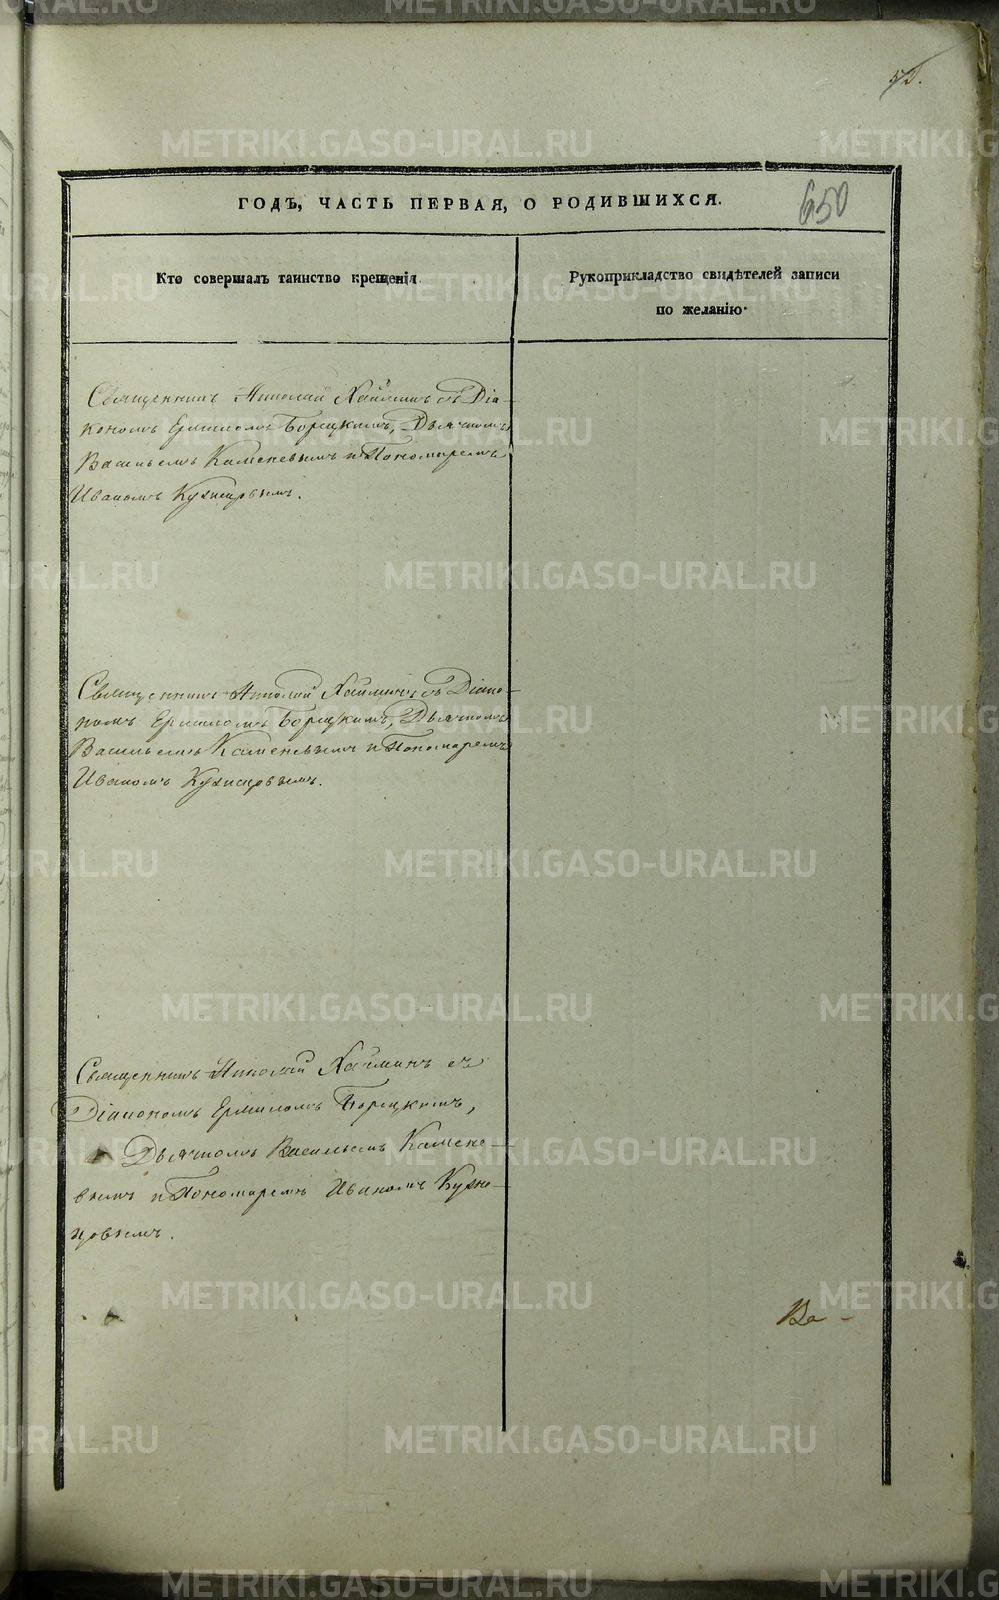 650
ГОДЪ, ЧАСТЬ ПЕРВАЯ, О РОДИВШИХСЯ.
Кто совершалъ таинство крещенія.
Рукоприкладство свидѣтелей записи
по желанію.
Священникъ Николай Хаймин съ Діа-
кономъ Ермиломъ Борецкимъ, Дьячкомъ
Васильемъ Каменевымъ и Пономаремъ
Иваномъ Кузнецовымъ.
Священникъ Николай Хайминъ съ Діако-
номъ Ермиломъ Борецкимъ, Дьячкомъ
Васильемъ Каменевымъ и Пономаремъ
Иваномъ Кузнецовымъ.
Священникъ Николай Хайминъ съ
Діакономъ Ермиломъ Борецкимъ,
Дьячкомъ Васильемъ Камене-
вымъ и Пономаремъ Иваномъ Кузне-
цовымъ.
Ва -
METRIKI.GASO-URAL.RU